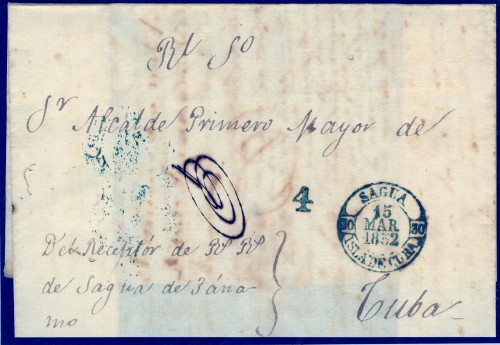 Rl So
Sr Alcalde Primero Mayor de
4
SAGUA
15
MAR
1852
30 30
ISLA DE CUBA
Del Receptór de Rs Rs
de Sagua de Tána
mo
Cuba